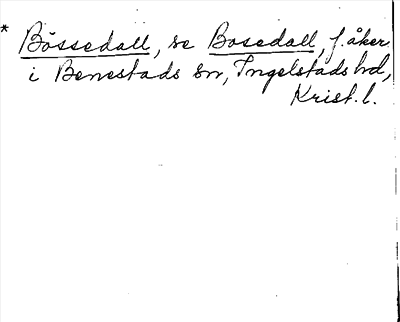 * Bössedall, se Bosedall, f. åker
i Benestads sn, Ingelstads hd,
Krist. l.